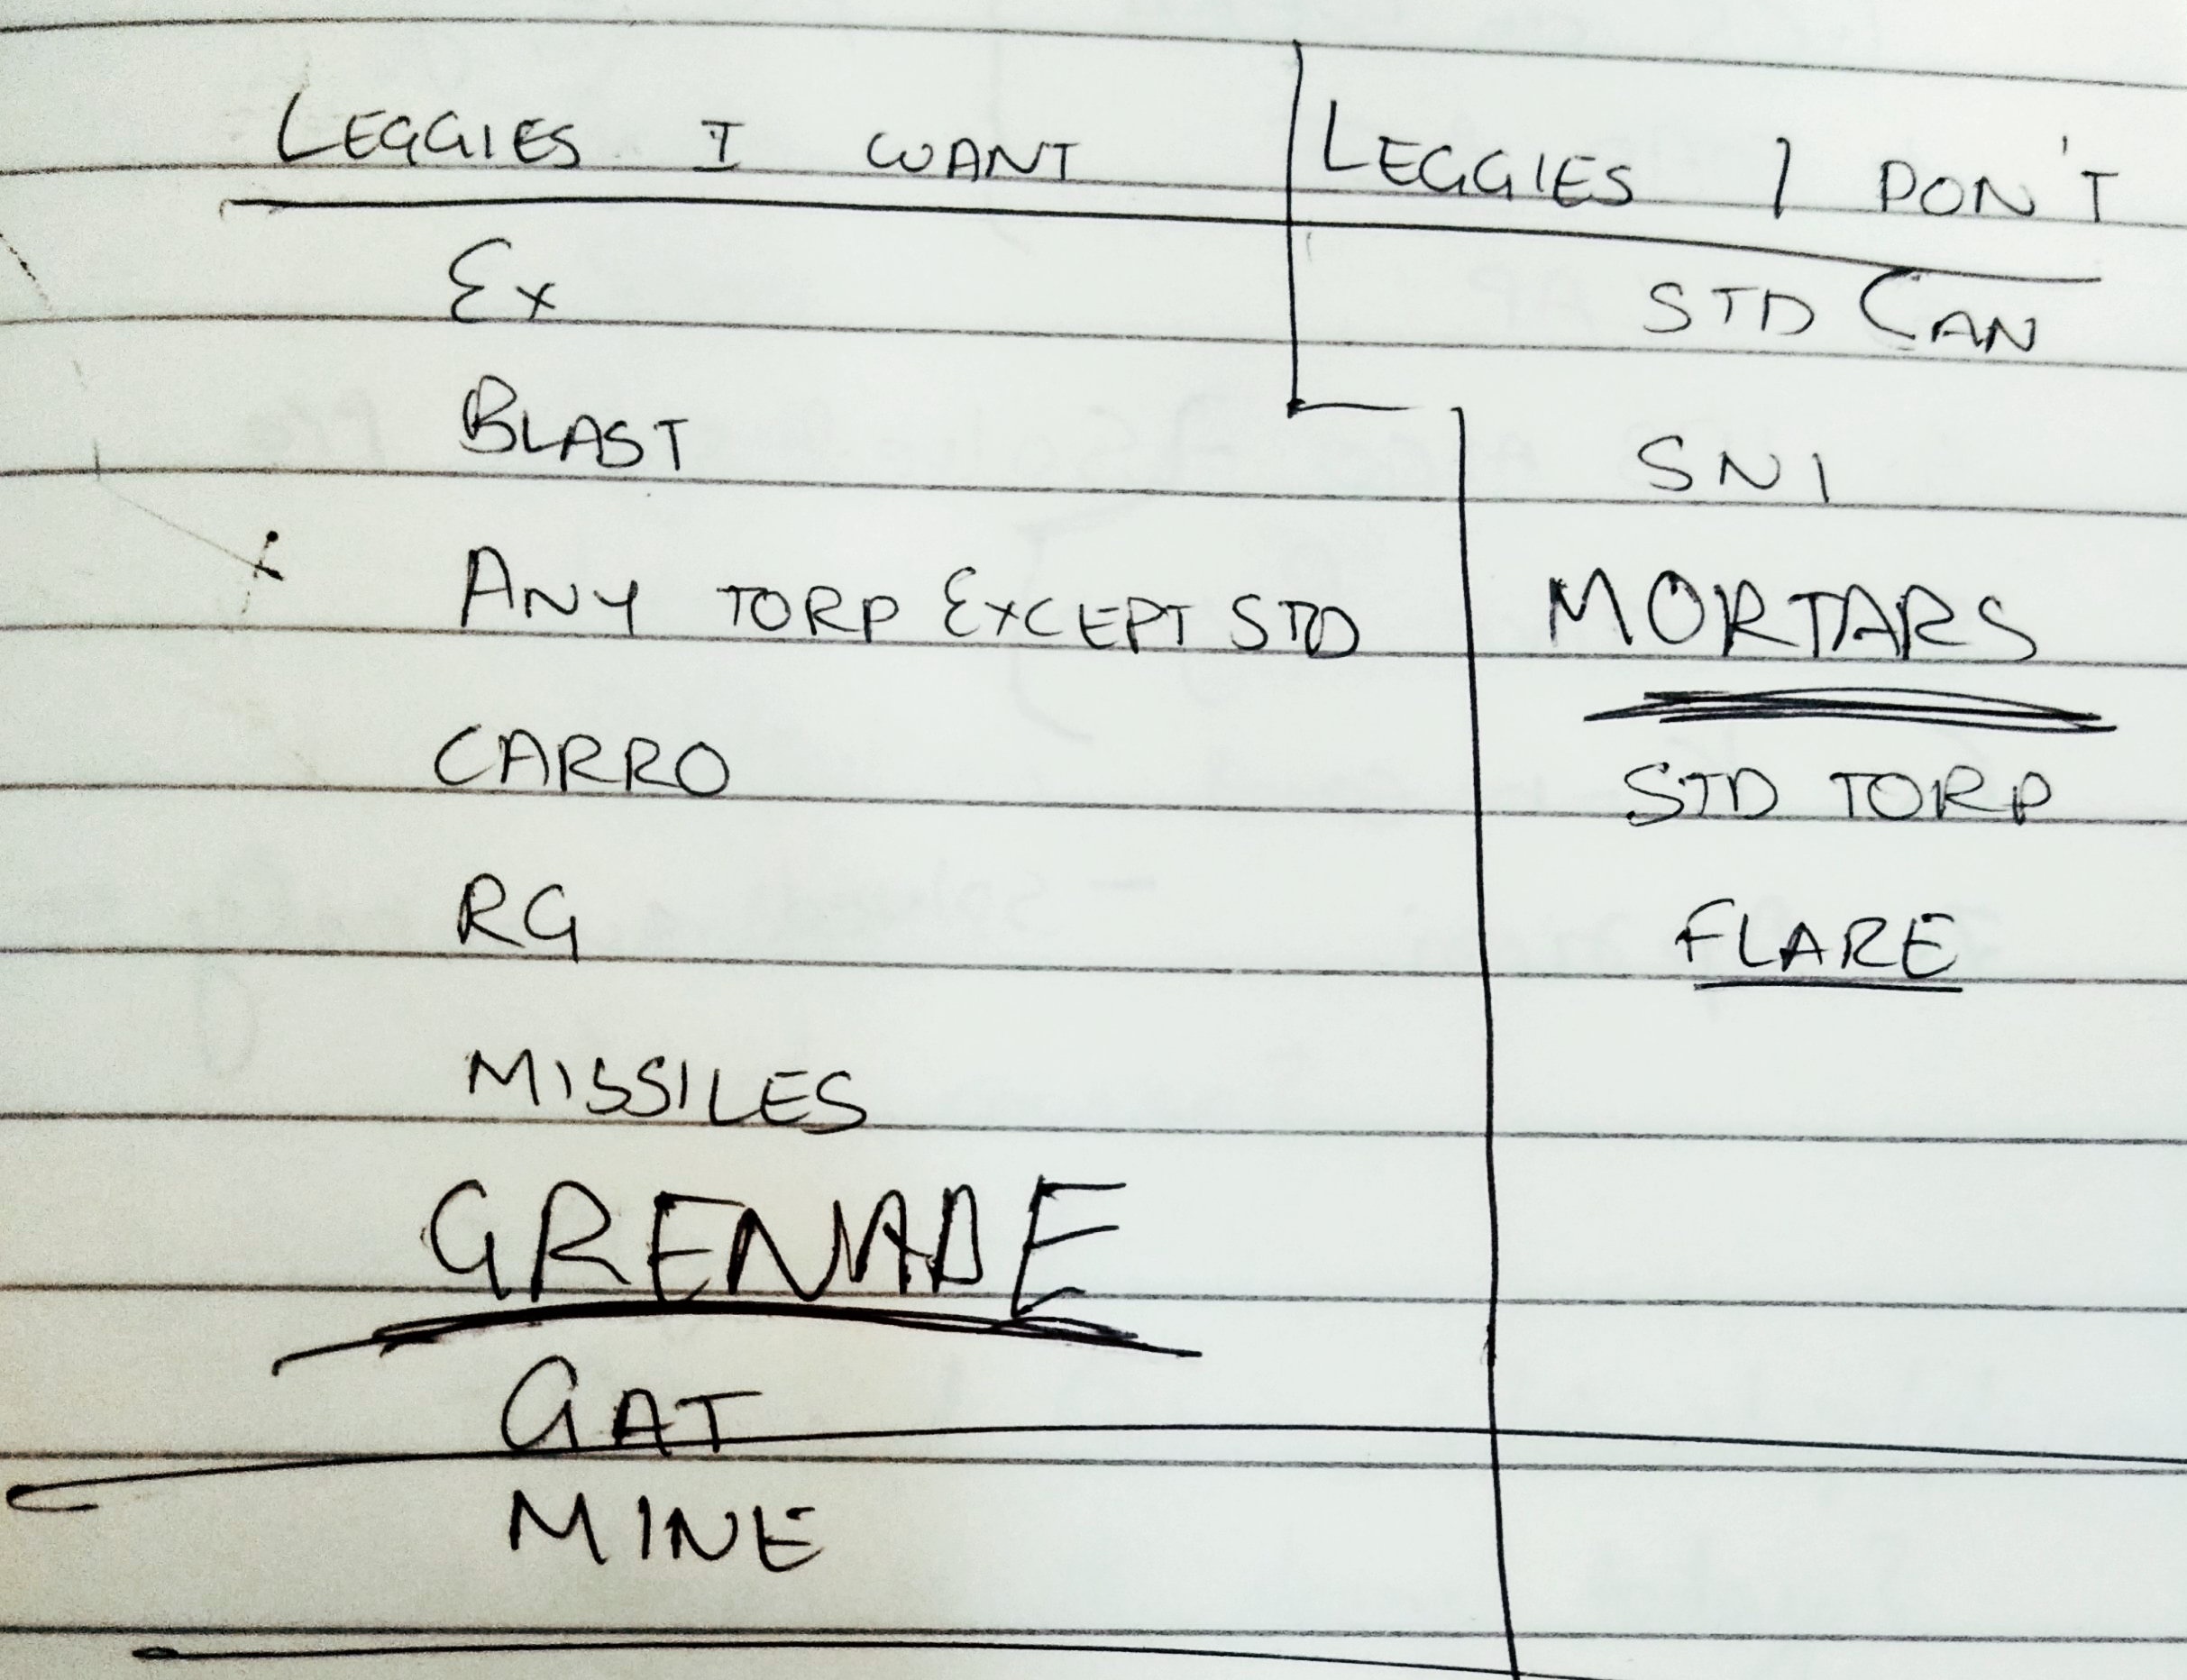 LEGGIES I WANT
Ex
BLAST
ANY TORP EXCEPT STD
CARRO
RG
MISSILES
GRENADE
GAT
MINE
LEGGIES I DON'T
STD CAN
SNI
MORTARS
STD TORP
FLARE